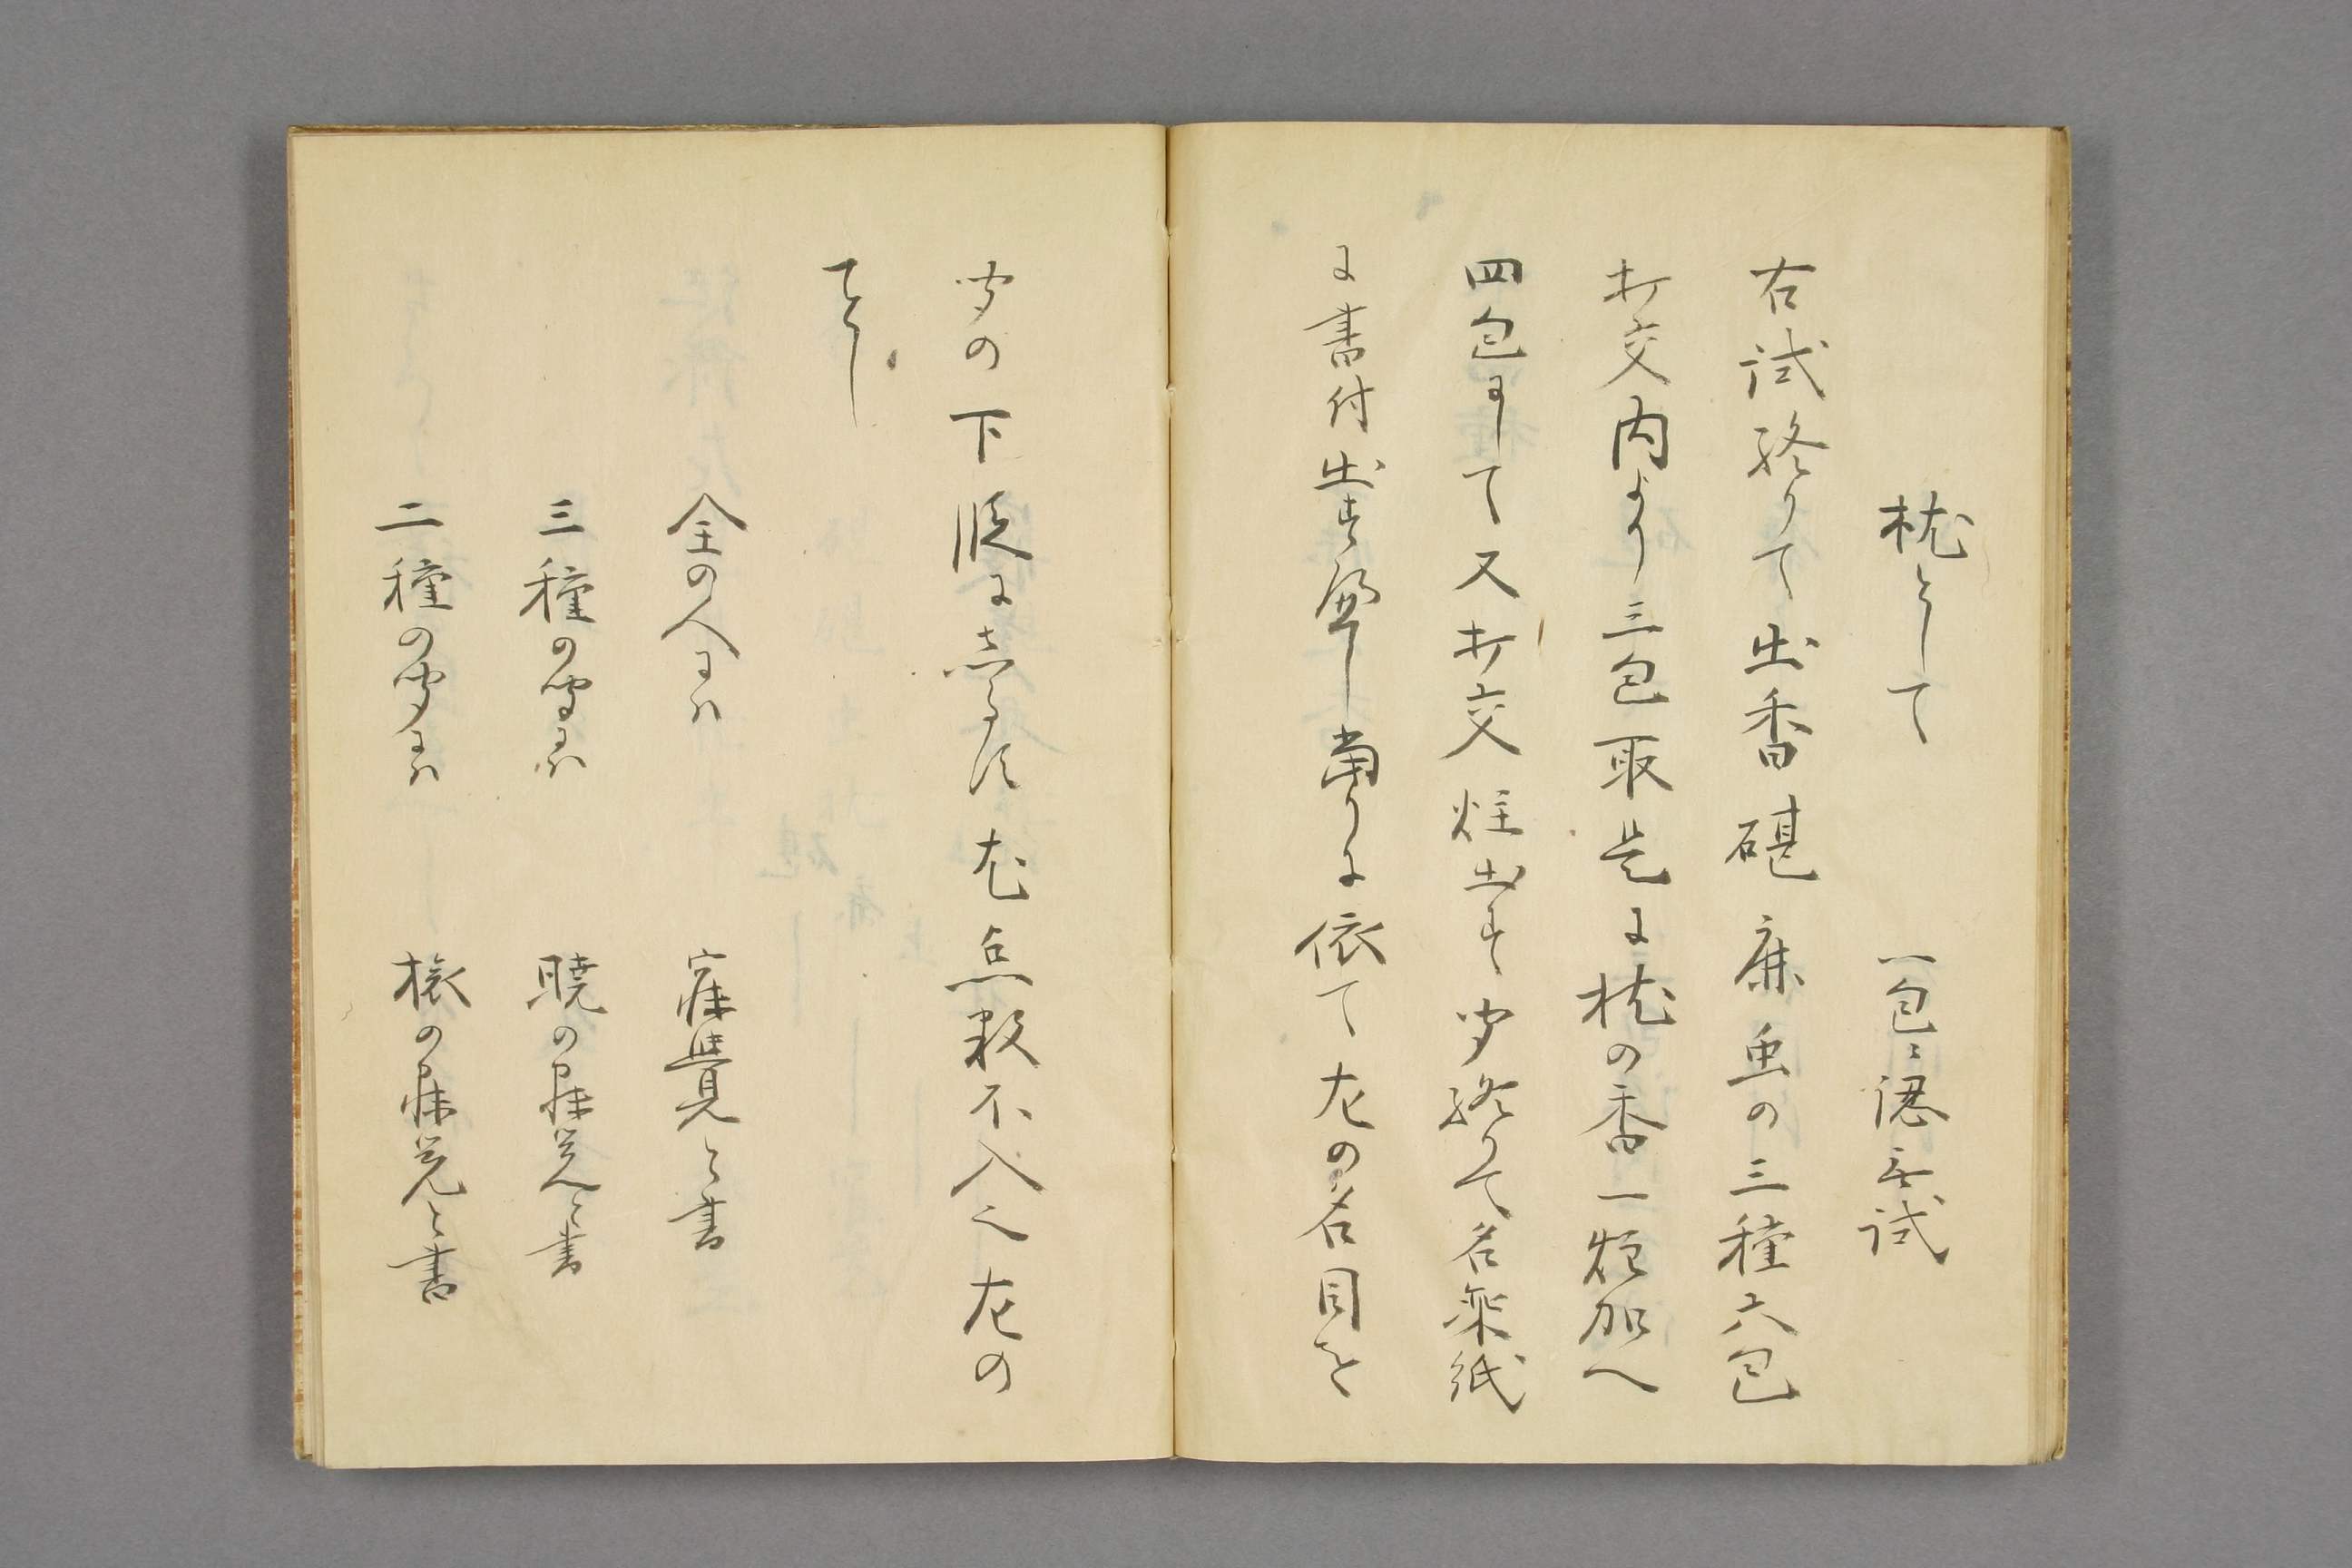 枕として　一包ニ認無試
右試終りて出香碪鹿虫の三種六包
打交内より三包取是に枕の香一炷加へ
四包にして又打交炷出す聞終りて名乗紙
に書付出すへし当りに依て左の名目を
聞の下段に志るす尤点数不入也左の
ことし
全の人には　寐覺と書
三種の聞には　暁の寐覚と書
二種の聞には　旅の寐覚と書